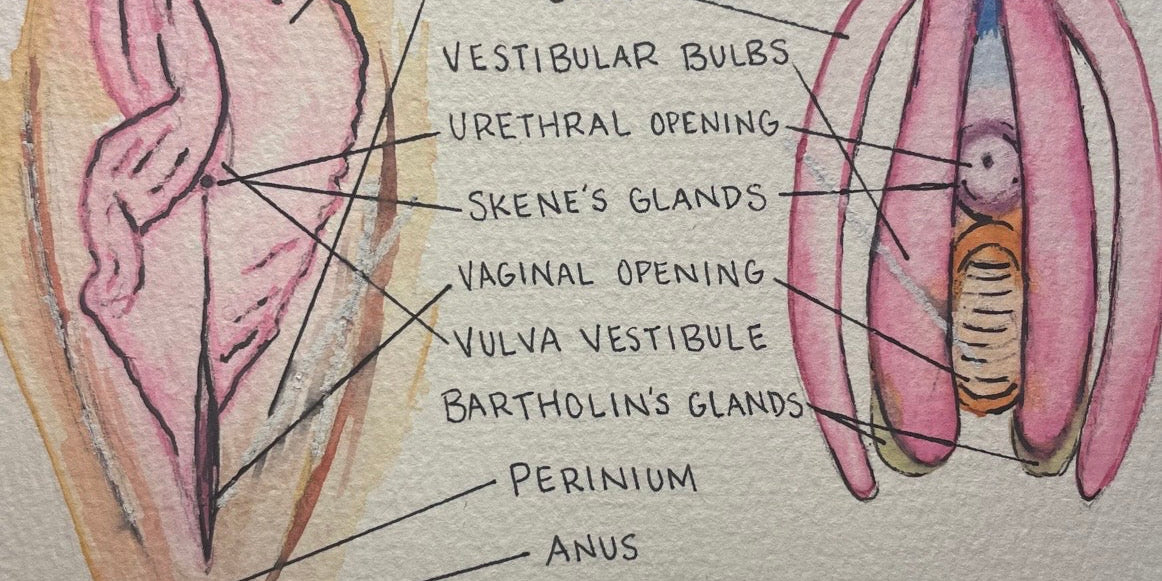 VESTIBULAR BULBS
URETHRAL OPENING
SKENE'S GLANDS
VAGINAL OPENING
VULVA VESTIBULE
BARTHOLIN'S GLANDS
PERINIUM
ANUS